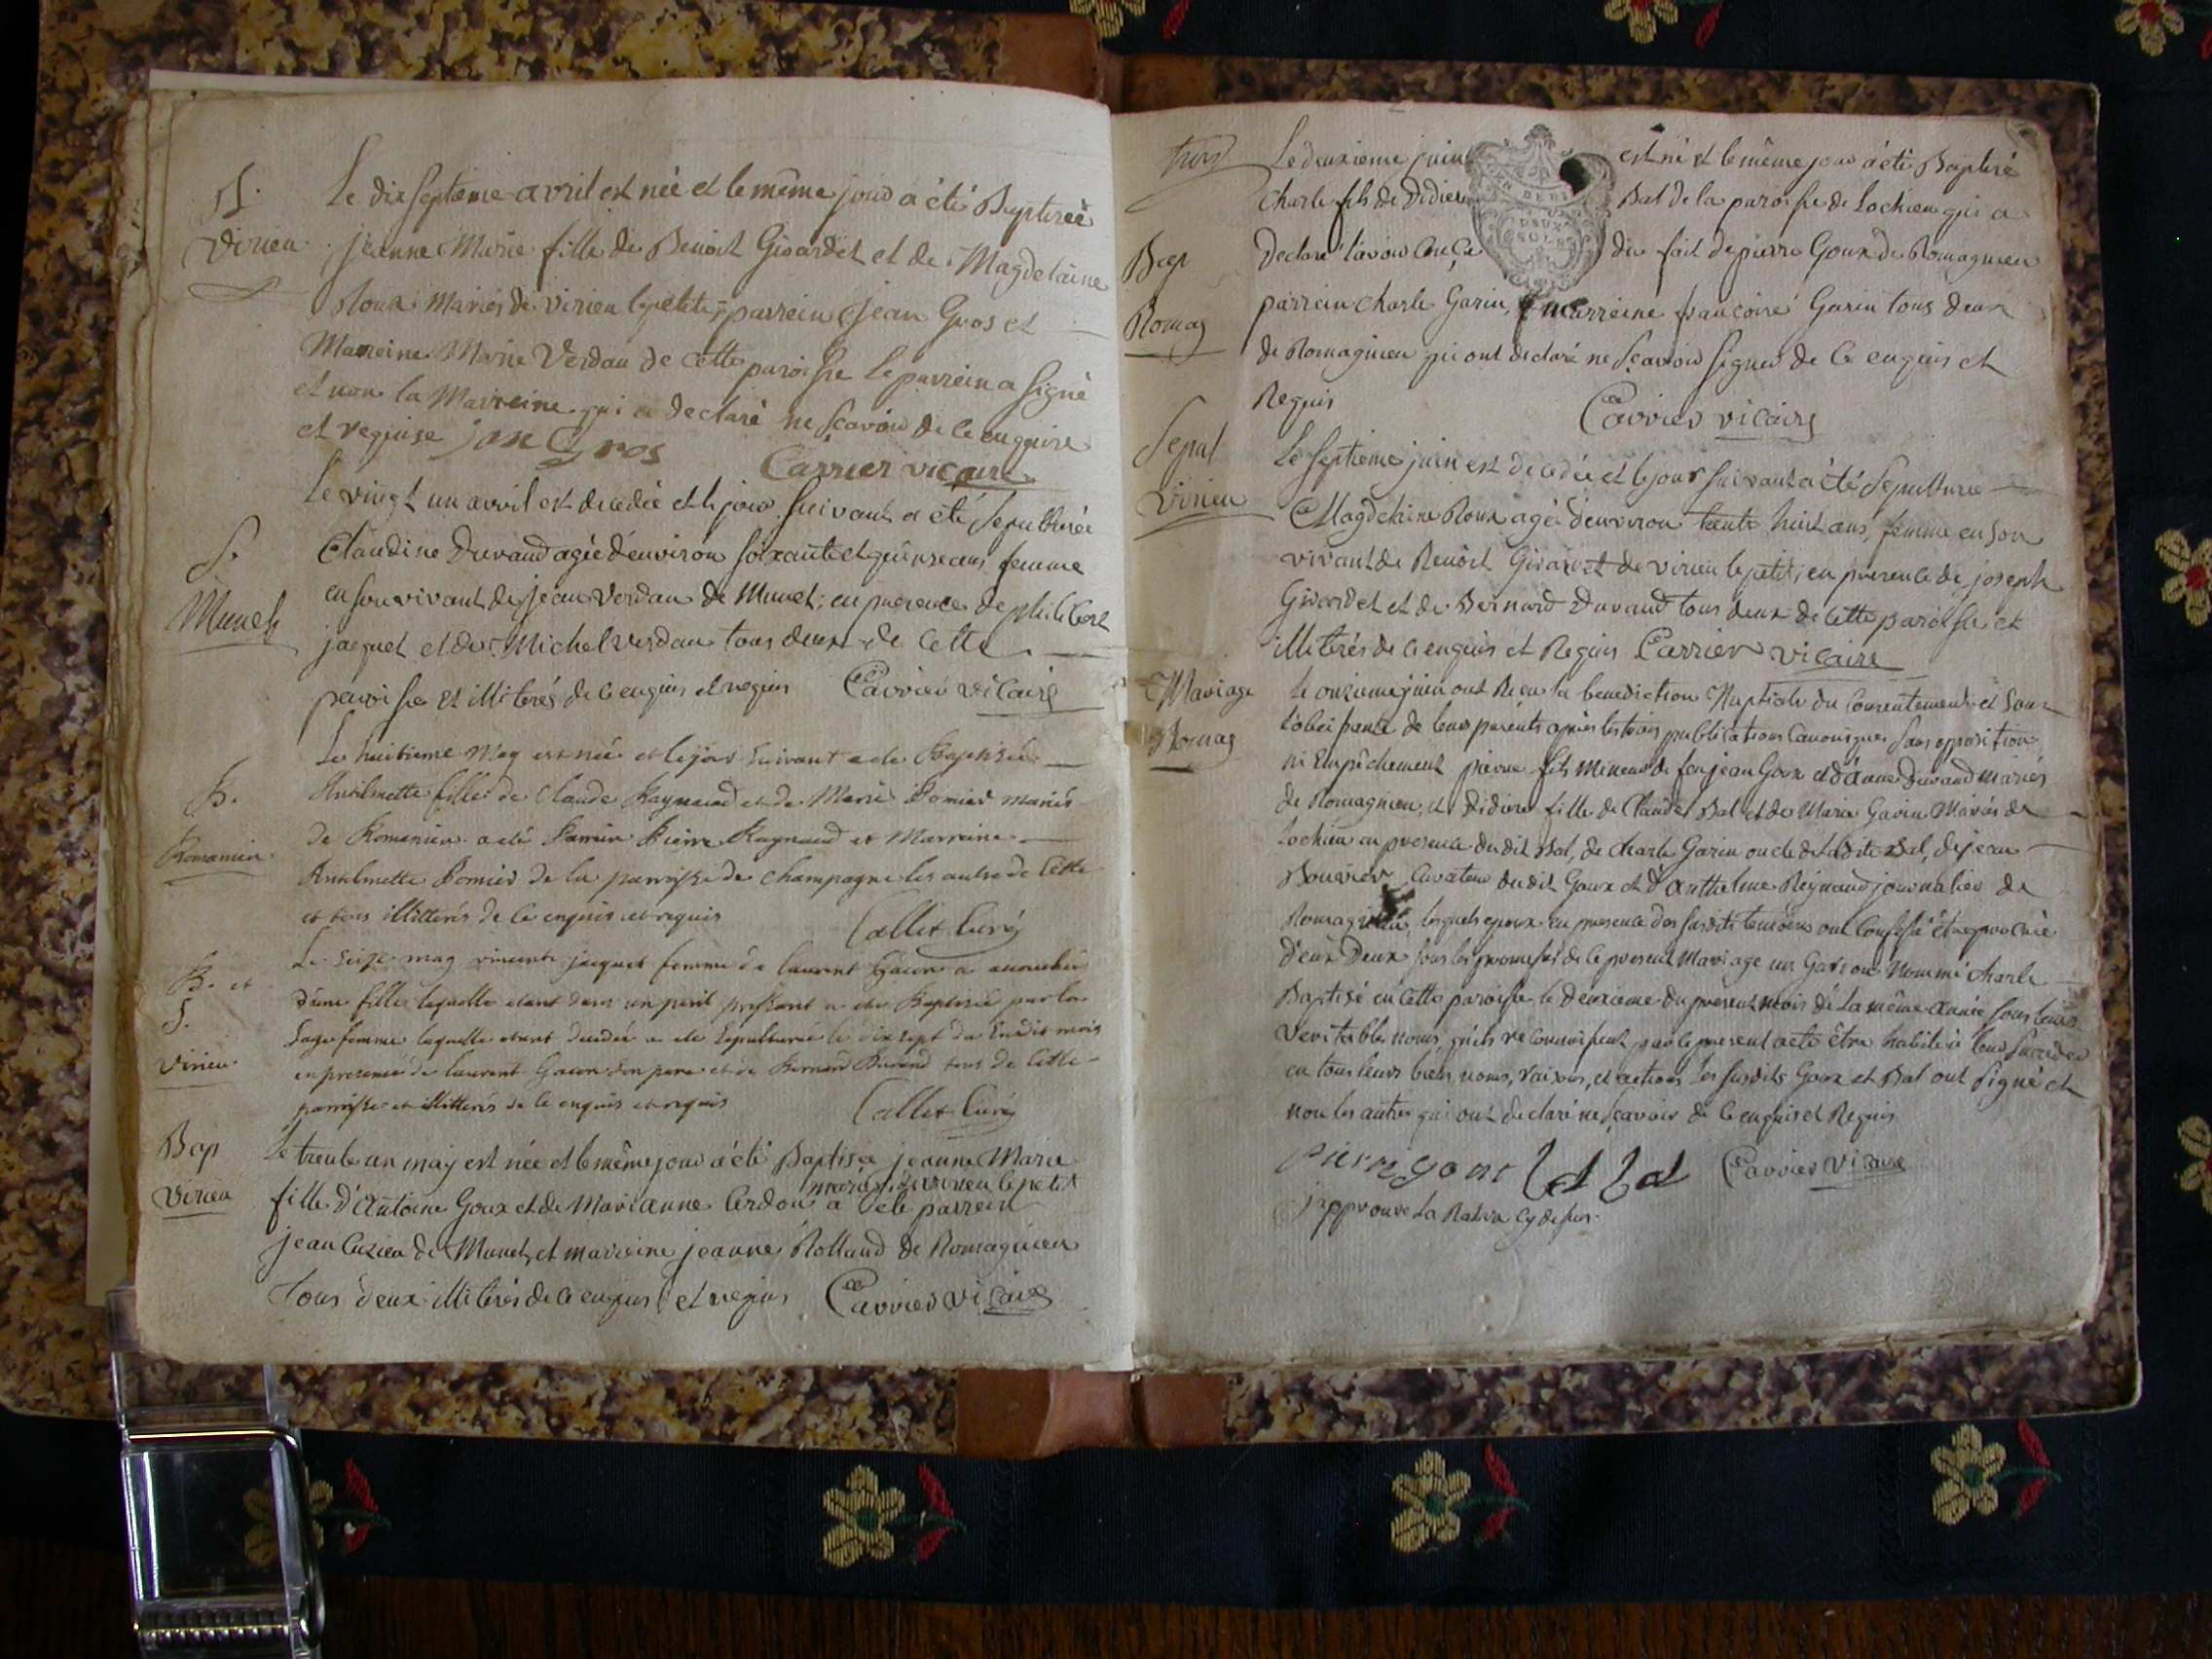 B.
Virieu
Le dix septieme avril est née et le même jour a été Baptisée
jeanne Marie fille de Benoit Girardet et de Magdelaine
Roux Mariés de virieu le petit, parrein jean Gros et
Marreine Marie Verdau de cette paroisse le parrein a signé
et non la Marreine qui a declaré ne sçavoir de ce enquise
et requise jan Gros Carrier vicaire
S.
Munet
Le vingt un avril est decedée et le jour suivant a été sepulturée
Claudine Durand agée d'environ soixante et quinze ans femme
en son vivant de jean Verdau de Munet; en presence de philibert
jacquet et de Michel verdau tous deux de cette
paroisse et illiterés de ce enquis et requis Carrier vicaire
B.
Romanieu
Le huitieme May est née et le jour suivant a ete Baptisée
Antelmette fille de Claude Raynaud et de Marie Pomier mariés
de Romanieu a eté Parrein Pierre Raynaud et Marraine
Antelmette Pomier de la parroisse de Champagne les autre de cette
et tous illitterés de ce enquis et requis Callet Curé
B. et
S.
Virieu
Le seize may vincente jacquet femme de laurent Gacon a accouchée
d'une fille laquelle etant dans un peril pressant a ete Baptisée par la
sage femme laquelle etant decedée a ete sepulturée le dix sept du susdit mois
en presence de laurent Gacon son pere et de Bernard Durand tous de cette
parroisse et illitterés de ce enquis et requis Callet Curé
Bap
Virieu
Le trente un may est née et le même jour a été Baptisée jeanne Marie
mariés de virieu le petit
fille d'Antoine Goux et de Marianne Cerdon a été parrein
jean Cuzieu de Munet, et marreine jeanne Rolland de Romagnieu
tous deux illiterés de ce enquis et requis Carrier vicaire
trois
Le deuxieme juin est né et le même jour a été Baptisé
DEUX
SOLS
Charle fils de Didiere Bal de la paroisse de Lochieu qui a
Bap
Declaré l'avoir conçu du fait de pierre Goux de Romagnieu
Romag
parrein charle Garin, marreine françoise Garin tous deux
de Romagnieu qui ont declaré ne sçavoir signer de ce enquis et
Requis Carrier vicaire
Sepul
Virieu
Le septieme juin est decedée et le jour suivant a été sepulturée
Magdelaine Roux agée d'environ trente huit ans, femme en son
vivant de Benoit Girardet de virieu le petit; en presence de joseph
Girardet et de Bernard Durand tous deux de cette paroisse et
illiterés de ce enquis et Requis Carrier vicaire
Mariage
Romag
Le onzieme juin ont Reçu la benediction Nuptiale du consentement et sous
l'obeissance de leurs parents après les trois publications Canoniques sans opposition
ni Empêchement pierre fils Mineur de feu jean Goux et d'Anne Durand mariés
de Romagnieu, et Didiere fille de Claude Bal et de Marie Garin Mariés de
Lochieu en presence du dit Bal, de Charle Garin oncle de la dite Bal, de jean
Bouvier Curateur du dit Goux et d'Anthelme Reynaud journalier de
Romagnieu, lesquels epoux en presence des susdits temoins ont confessé être procréé
d'eux Deux sous les promesses de ce present Mariage un Garçon Nommé charle
Baptisé en cette paroisse le deuxieme du présent mois de la même année sous leurs
veritables noms, qu'ils reconnoissent par le present acte être habile à leur succeder
en tous leurs biens, noms, raisons, et actions Les susdits Goux et Bal ont signé et
non les autres qui ont declaré ne sçavoir de ce enquis et Requis
pierre goux Carrier vicaire
j'approuve La Rature cy dessus.